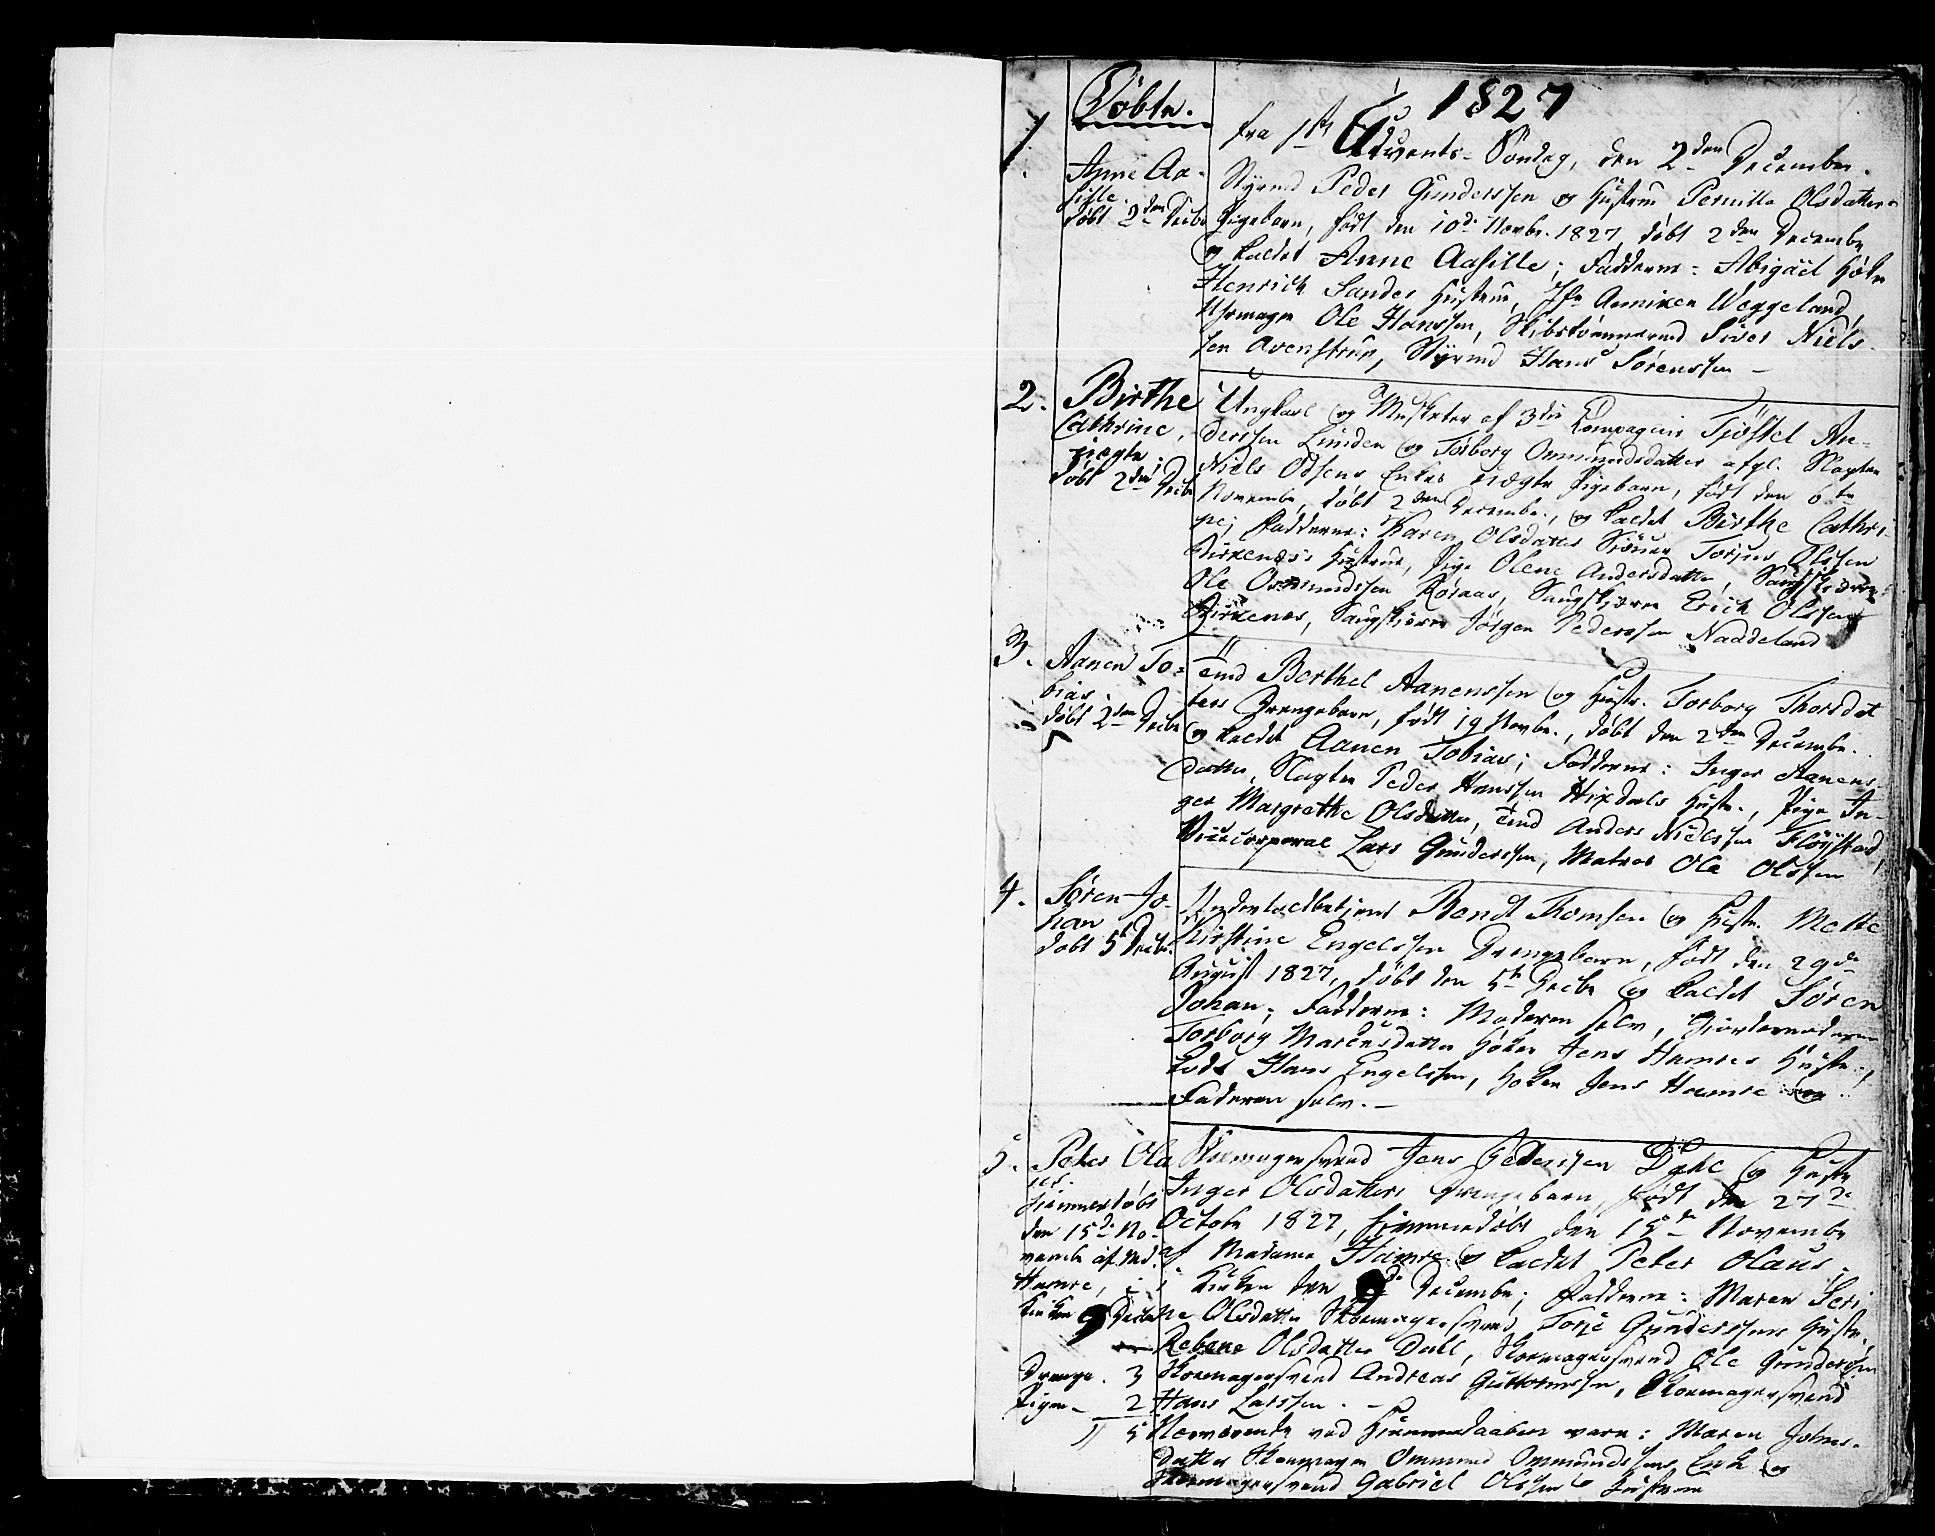 Döbte.
1827
fra 1ste Advents-Söndag, den 2den December.
1.
Anne Aa-
sille.
döbt 2den Decbr
Styrmd Peder Gunderssen og Hustrue Pernille Olsdatters
Pigebarn, födt den 10de Novbr. 1827, döbt 2den Decembr
og kaldet Anne Aasille; Fadderne: Abigäel Höker
Henrich Sanders Hustrue, Jfr Anniken Weggeland,
Uhrmager Ole Hanssen, Skibstömmermd Siver Niels-
sen Avenstrup, Styrmd Hans Sörenssen —
2.
Birthe
Cathrine,
uægte.
döbt 2den Decbr
Ungkarl og Musketer af 3die Compagnie Tjöstel An-
derssen Lunden og Torborg Ommundsdatter afgl. Slagter
Niels Odsens Enkes uægte Pigebarn, födt den 6te
Novembr, döbt 2den Decembr., og kaldet Birthe Cathri-
ne; Fadderne: Karen Olsdatter Torjus Olssen
Birkenæs's Hustrue, Pige Olene Andersdatter, Saugskærer
Ole Osmundssen Röraas, Saugskjærer Erich Olssen
Birkenes, Saugskjærer Jörgen Pederssen Naddeland
3.
Aanen To-
bias.
döbt 2den Decbr
Tmd Berthel Aanenssen og Hustr. Torborg Thorsdat-
ters Drengebarn, födt 19 Novbr., döbt den 2den Decembr.
og kaldet Aanen Tobias; Fadderne: Inger Aanens-
datter, Slagter Peder Hanssen Hixdals Hustr., Pige In-
ger Margrethe Olsdatter, Tmd Anders Nielssen Flöystad,
Vicecorporal Lars Gunderssen, Matros Ole Olssen
4.
Sören Jo-
han
döbt 5te Decbr.
Undertoldbetjent Bendt Thomsen og Hustr. Mette
Kirstine Engelssen Drengebarn, födt den 29de
August 1827, döbt den 5te Decbr og kaldet Sören
Johan; Fadderne: Moderen selv, Giordemoderen
Torborg Marcusdatter Höker Jens Hamres Hustr.,
Lods Hans Engelssen, Höker Jens Hamre og
Faderen selv. —
5.
Peter Ola-
us.
hiemmedöbt
den 15de No-
vembr af Md.
Hamre, i
Kirken 9 Decbr
Skomagersvend Jens Pederssen Dyhe og Hustr
Inger Olsdatters Drengebarn, födt den 27de
Octobr 1827, hiemmedöbt den 15de Novembr
af Madame Hamre og kaldet Peter Olaus.
i Kirken den 9de Decembr; Fadderne: Maren Seri-
ne Olsdatter Skomagersvend Torje Gunderssens Hustr.
Rebene Olsdatter Dall, Skomagersvend Ole Gunderssen
Skomagersvend Andreas Guttormssen, Skomagersvend
Hans Larssen. —
Drenge. 3
Piger — 2
5
Nærværende ved Hiemmedaaben vare: Maren Johns-
datter Skomager Ommund Ommundssens Enke og
Skomagersvend Gabriel Olssens Hustrue